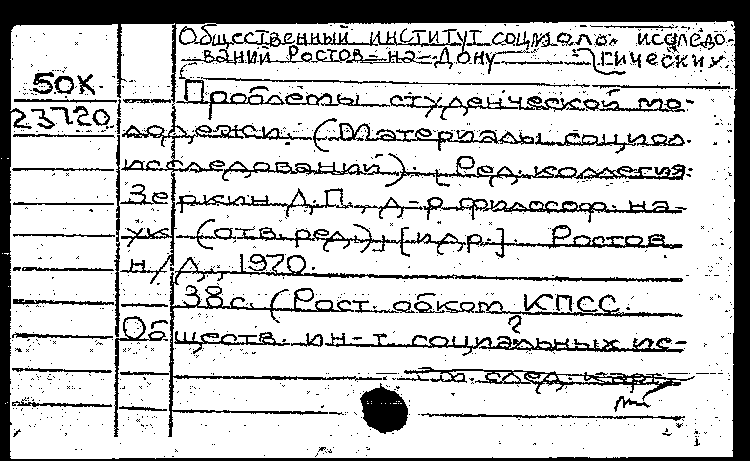 Общественный институт социоло- исследо-
ваний Ростов-на-Дону гических
50К.
Проблемы студенческой мо-
23720
лодежи. (Материалы социол.
исследований). [Ред. коллегия:
Зеркин Д.П., д-р философ. на-
ук (отв. ред.), [и др.]. Ростов
н/Д., 1970.
38с. (Рост. обком КПСС.
Обществ. ин-т социальных ис-
?
См. след. карт.